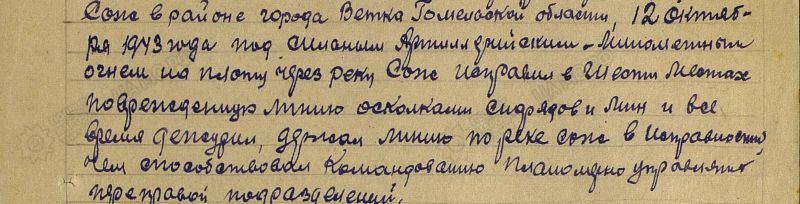 Сож в районе города Ветка Гомельской области, 12 октяб-
ря 1943 года под сильным Артиллерийским-Минометным
огнем на плоту через реку Сож исправил в шести местах
поврежденную линию осколками снарядов и мин и все
время дежурил, держал линию по реке сож в исправности,
чем способствовал Командованию планомерно управлять
переправой подразделений.